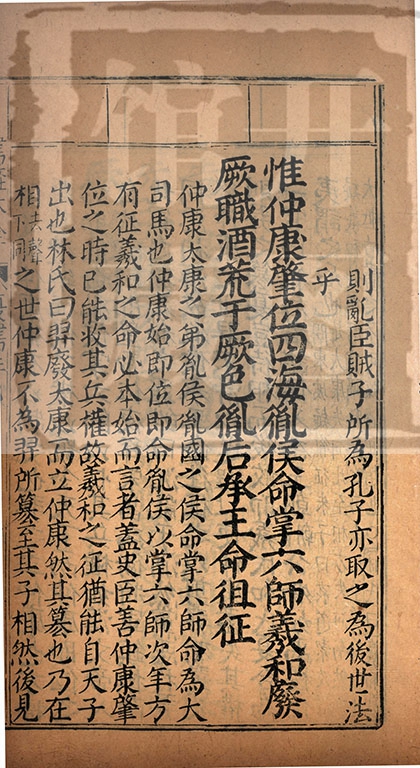 則亂臣賊子所為孔子亦取之為後世法
乎
惟仲康肇位四海胤侯命掌六師羲和廢
厥職酒荒于厥邑胤后承王命徂征
仲康太康之弟胤侯胤國之侯命掌六師命為大
司馬也仲康始即位即命胤侯以掌六師次年方
有征羲和之命必本始而言者蓋史臣善仲康肇
位之時已能收其兵權故羲和之征猶能自天子
出也林氏曰羿廢太康而立仲康然其篡也乃在
相去聲下同之世仲康不為羿所篡至其子相然後見